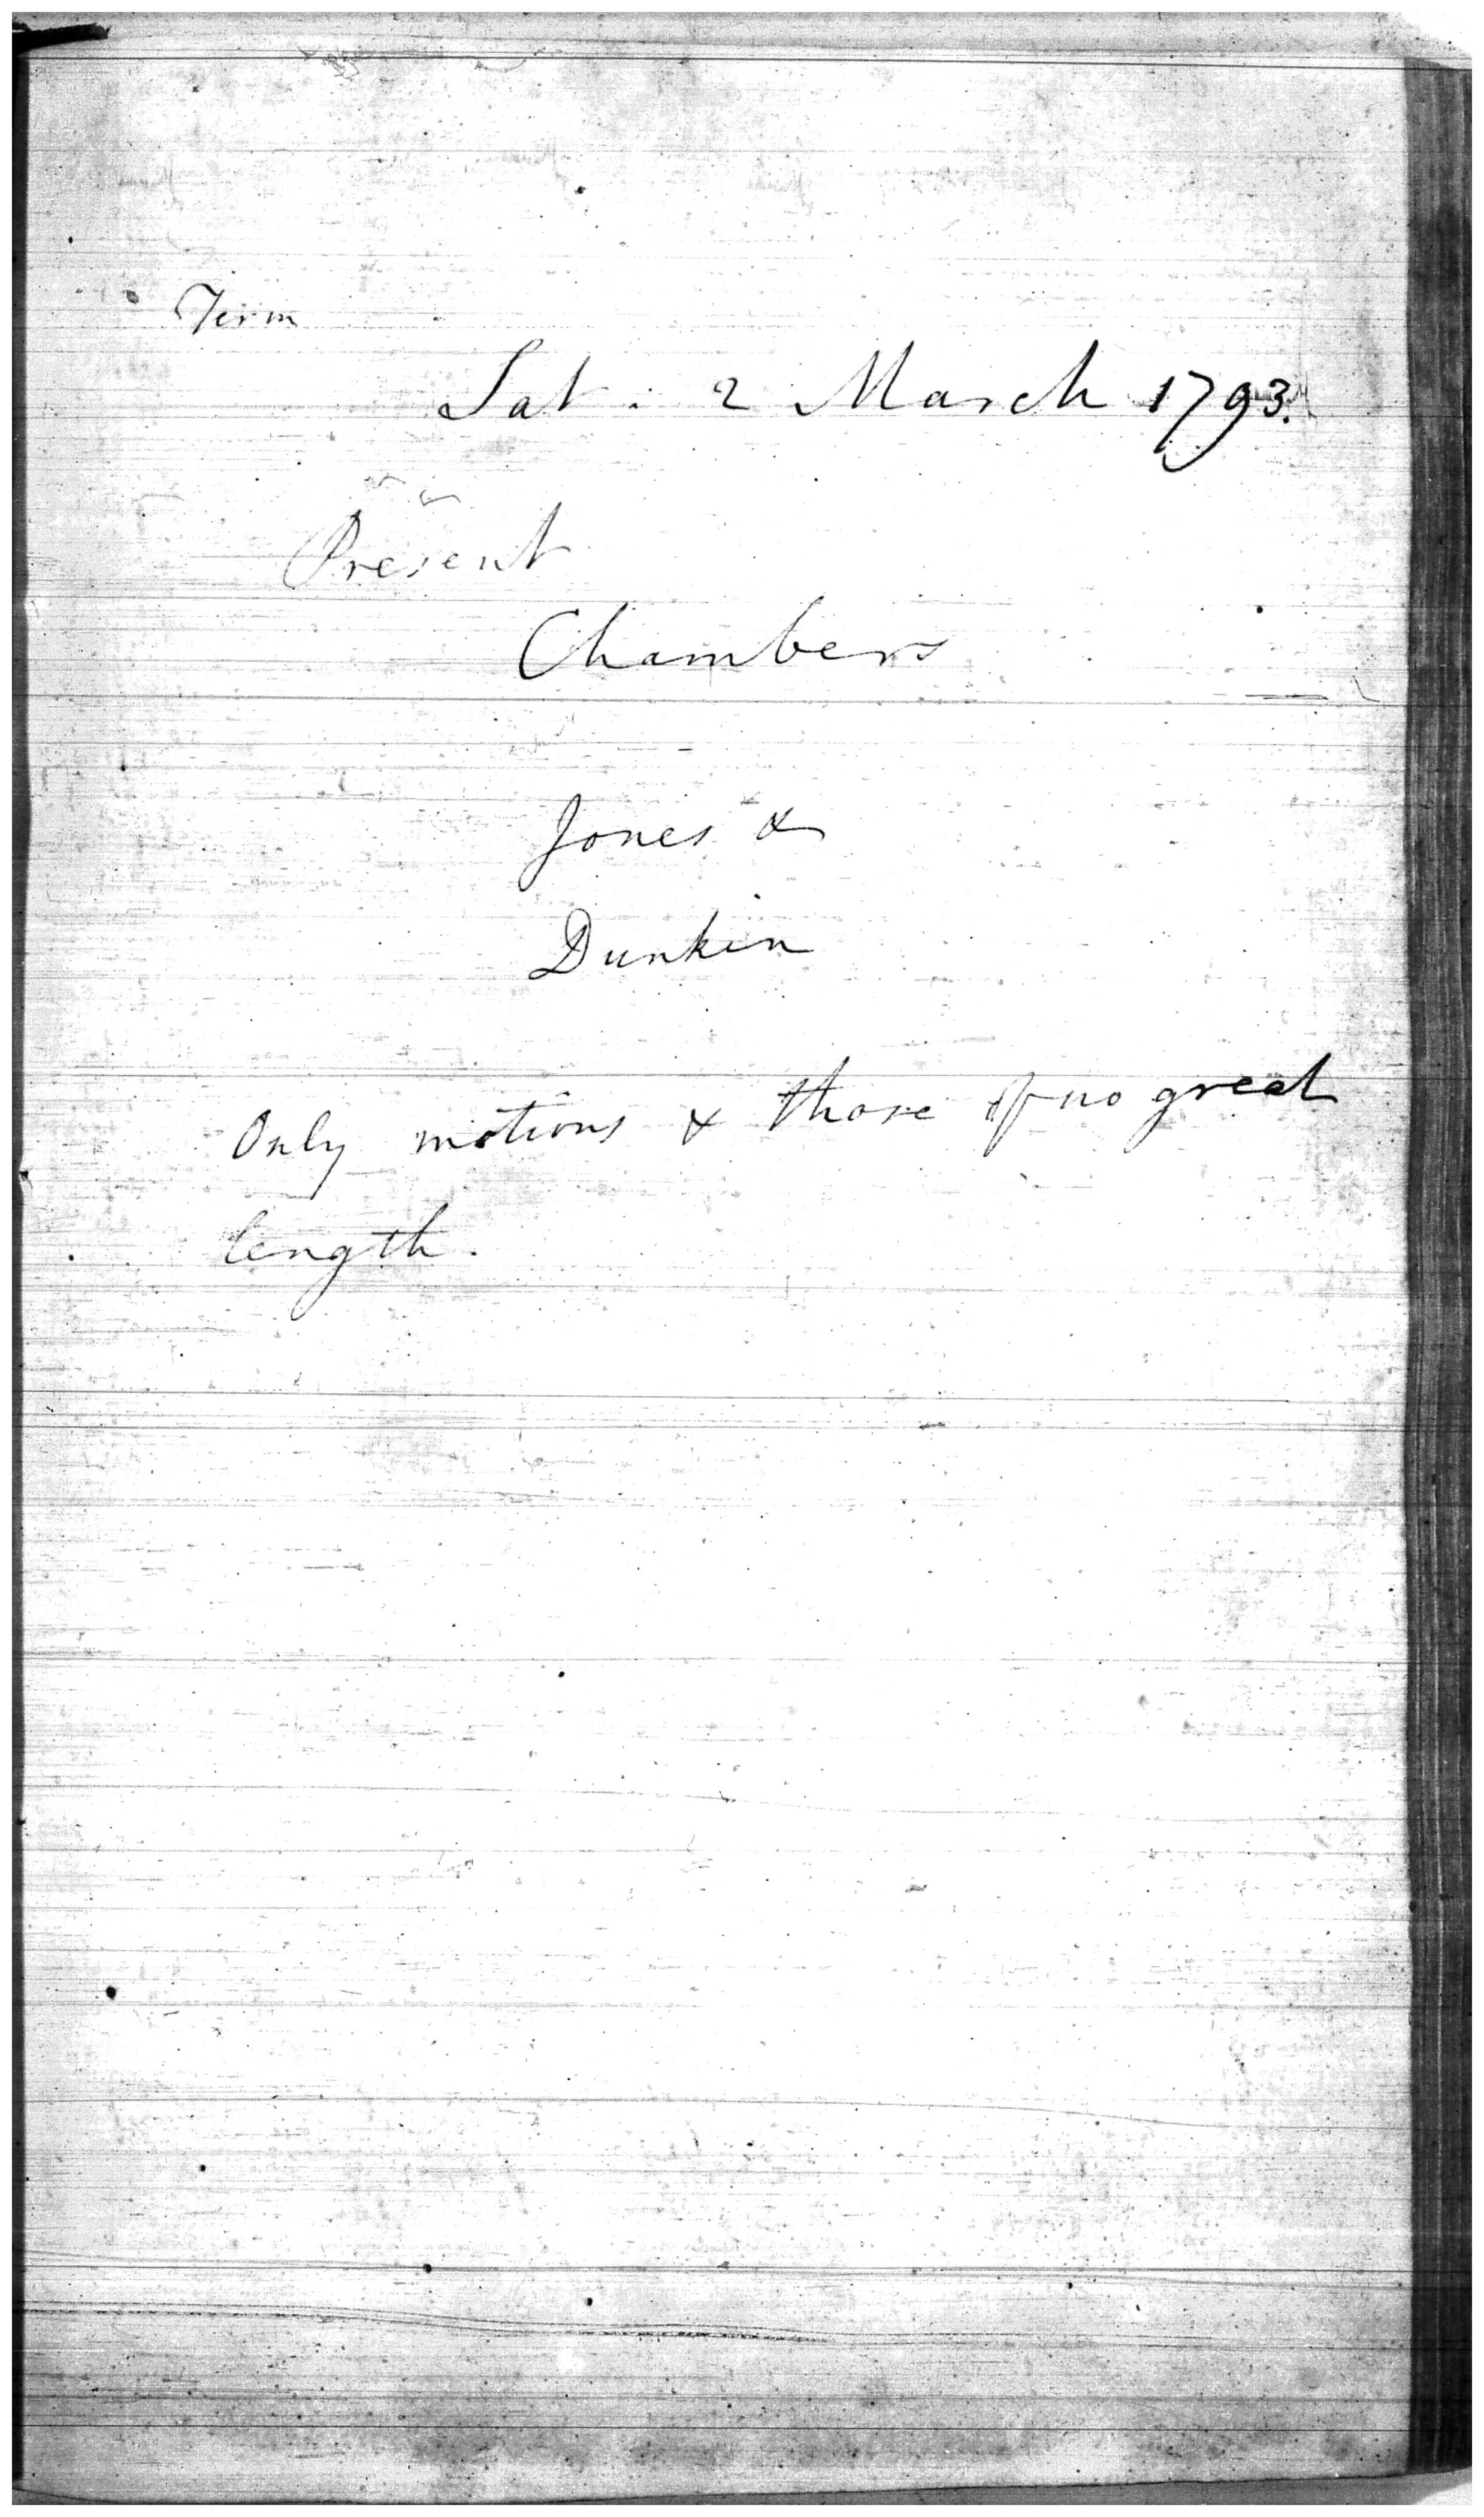 Term
Sat. 2 March 1793.
Present
Chambers
Jones &
Dunkin
Only motions & those of no great
length.